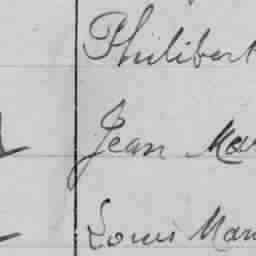 Philibert
Jean Mar
Louis Mari